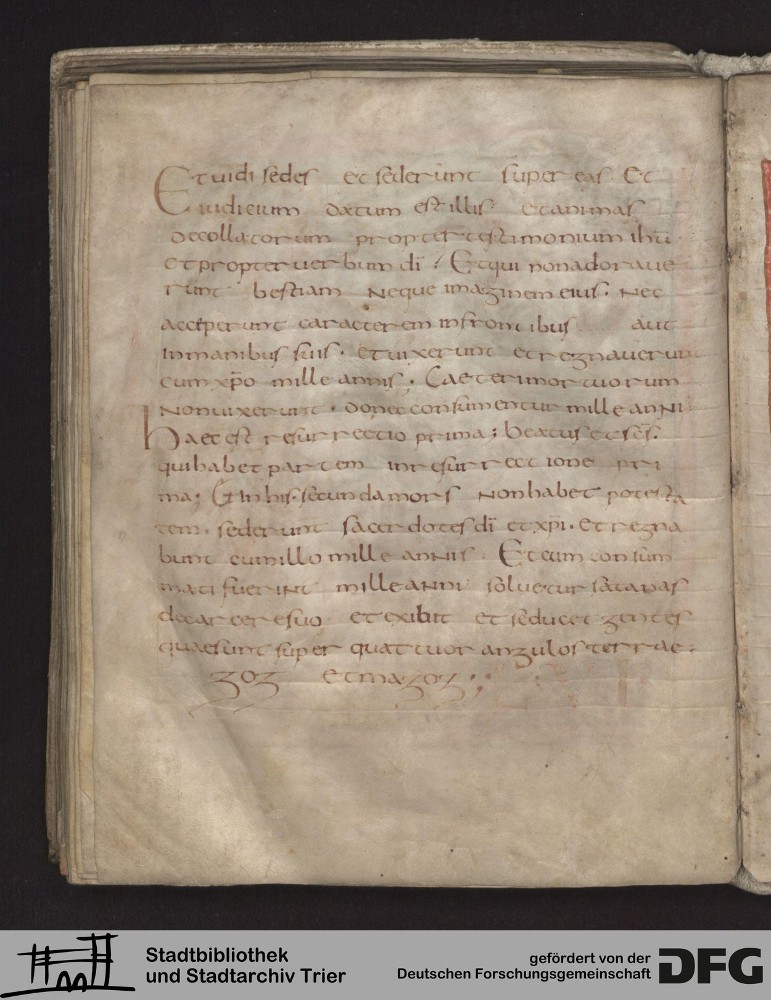 Et vidi sedes et sederunt super eas Et
iudicium datum est illis et animas
decollatorum propter testimonium ihū
et propter uerbum dī Et qui non adoraue
runt bestiam Neque imaginem eius· Nec
acceperunt caracterem in frontibus aut
in manibus suis· et uixerunt et regnauerunt
cum xp̄o mille annis· Caeteri mortuorum
Non uixerunt· donec consumentur mille anni
haec est resurrectio prima; beatus et sc̄s·
qui habet partem in resurrectione pri
ma; In his· secunda mors Non habet potesta
tem· sederunt sacerdotes dī et xp̄i· et regna
bunt cum illo mille annis· Et cum consum
mati fuerint mille anni soluetur satanas
de carcere suo et exibit et seducet gentes
quae sunt super quattuor angulos terrae·
gog et magog;;
Stadtbibliothek
und Stadtarchiv Trier
gefördert von der
Deutschen Forschungsgemeinschaft
DFG